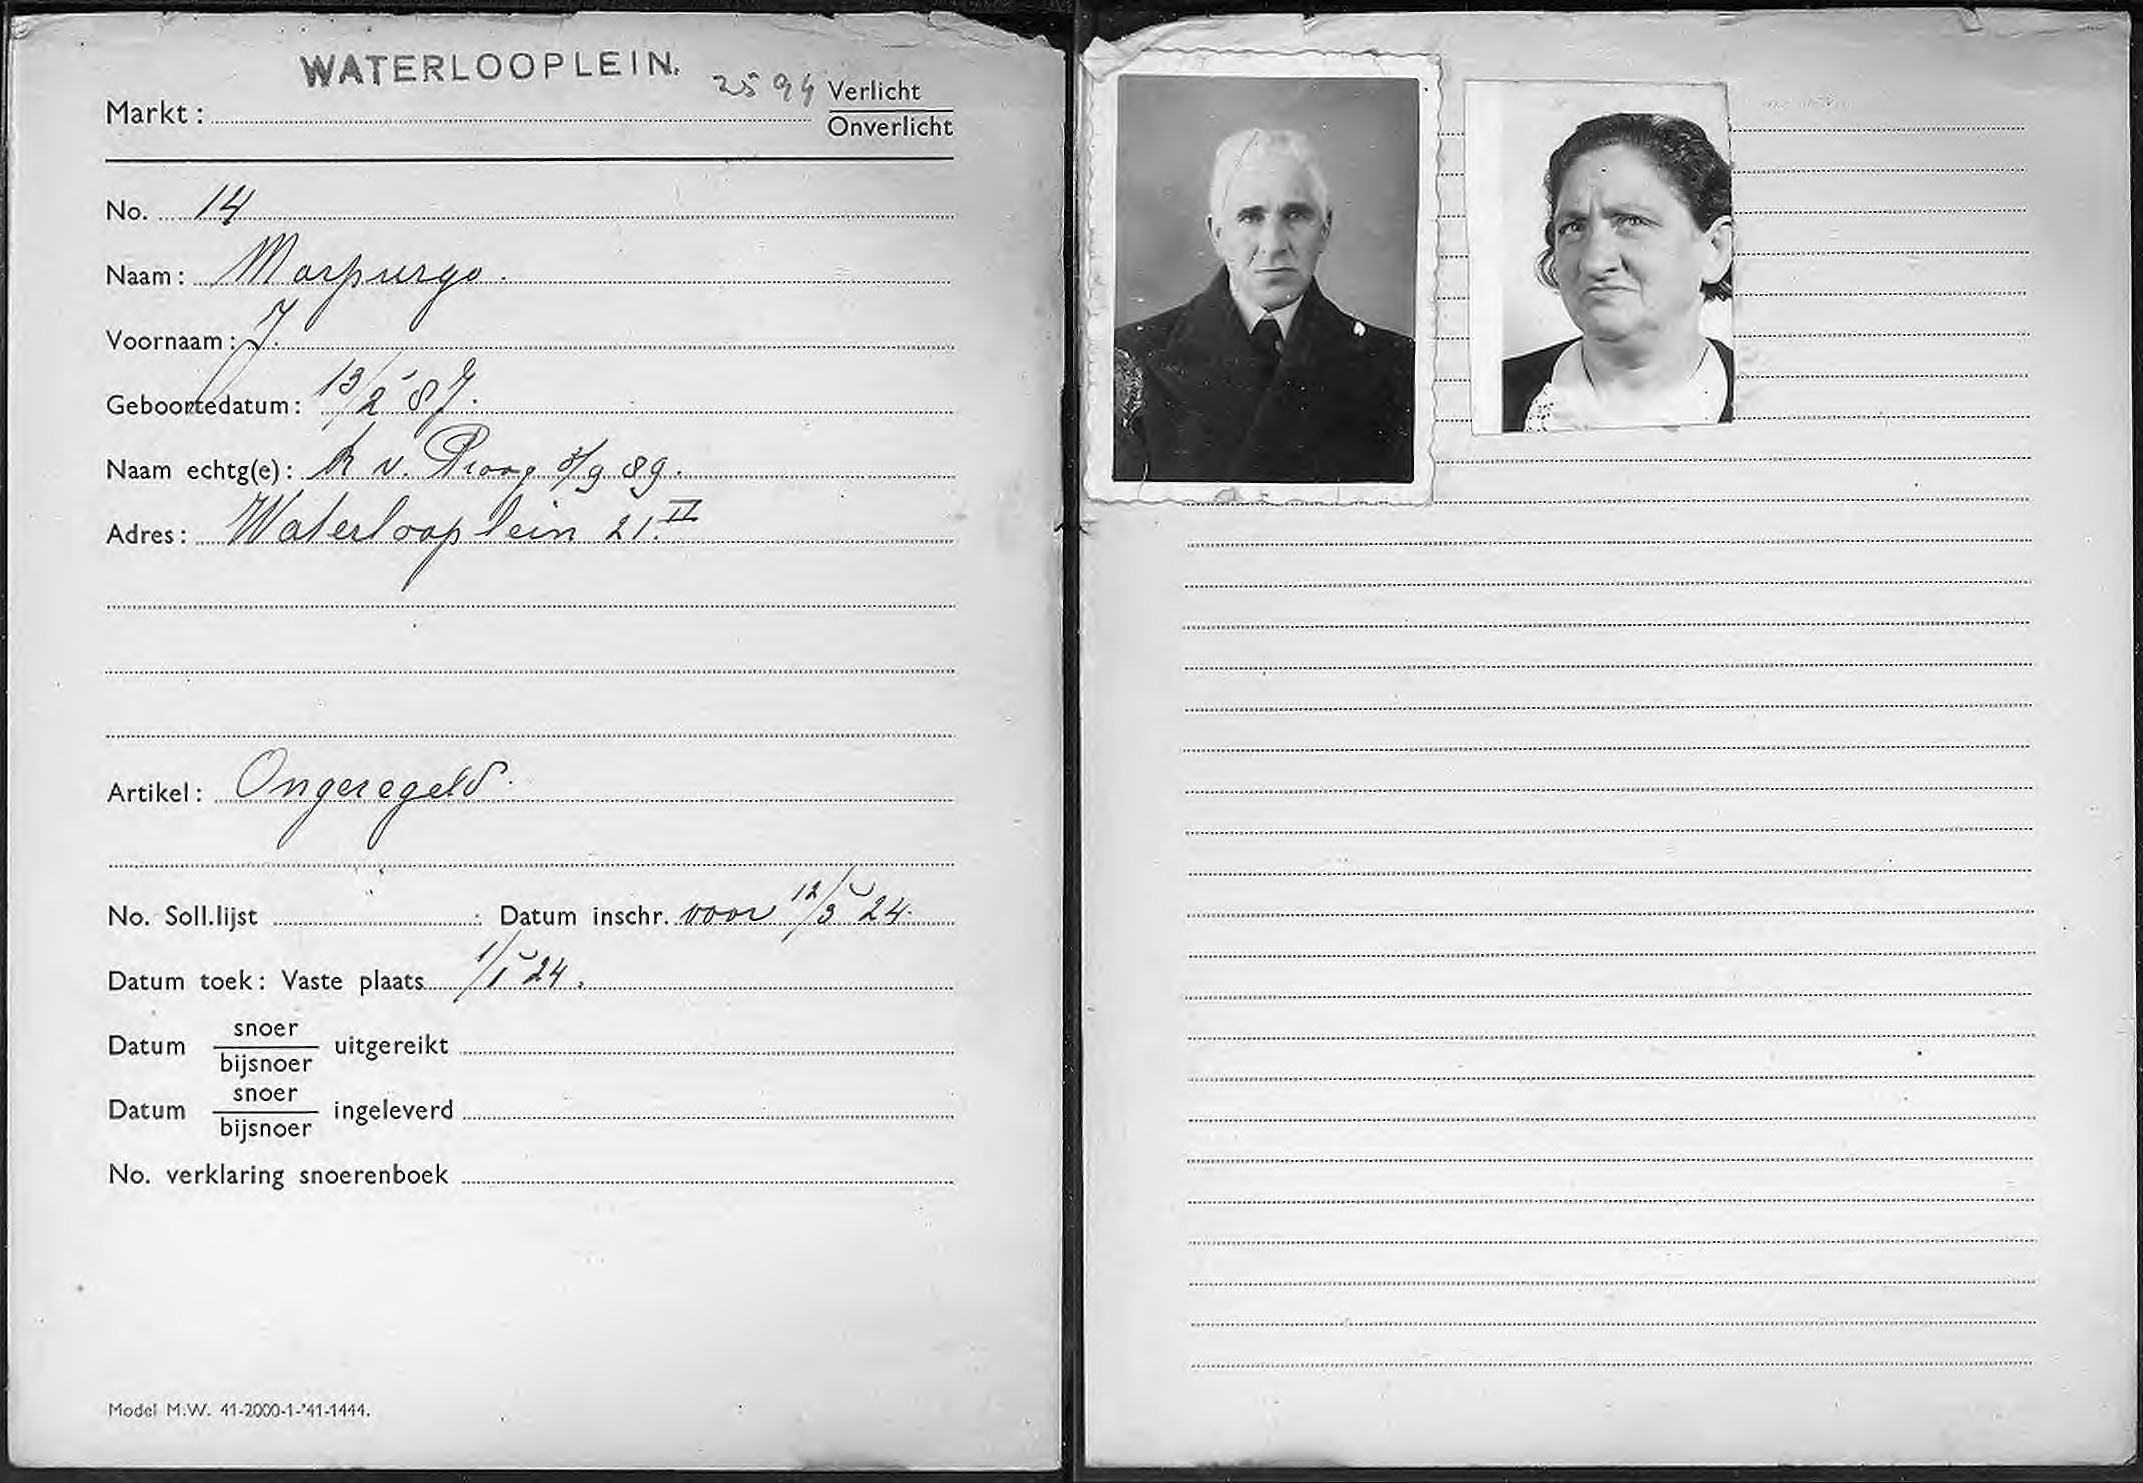 WATERLOOPLEIN.
2594 Verlicht
Markt :
Onverlicht
No. 14
Naam : Morpurgo.
Voornaam : J.
Geboortedatum : 13/2 '87.
Naam echtg(e) : R v. Praag 8/9 89.
Adres : Waterlooplein 21.II
Artikel : Ongeregeld.
No. Soll.lijst Datum inschr. voor 12/3 24.
Datum toek : Vaste plaats 1/1 24.
Datum snoer uitgereikt
bijsnoer
Datum snoer ingeleverd
bijsnoer
No. verklaring snoerenboek
Model M.W. 41-2000-1-'41-1444.